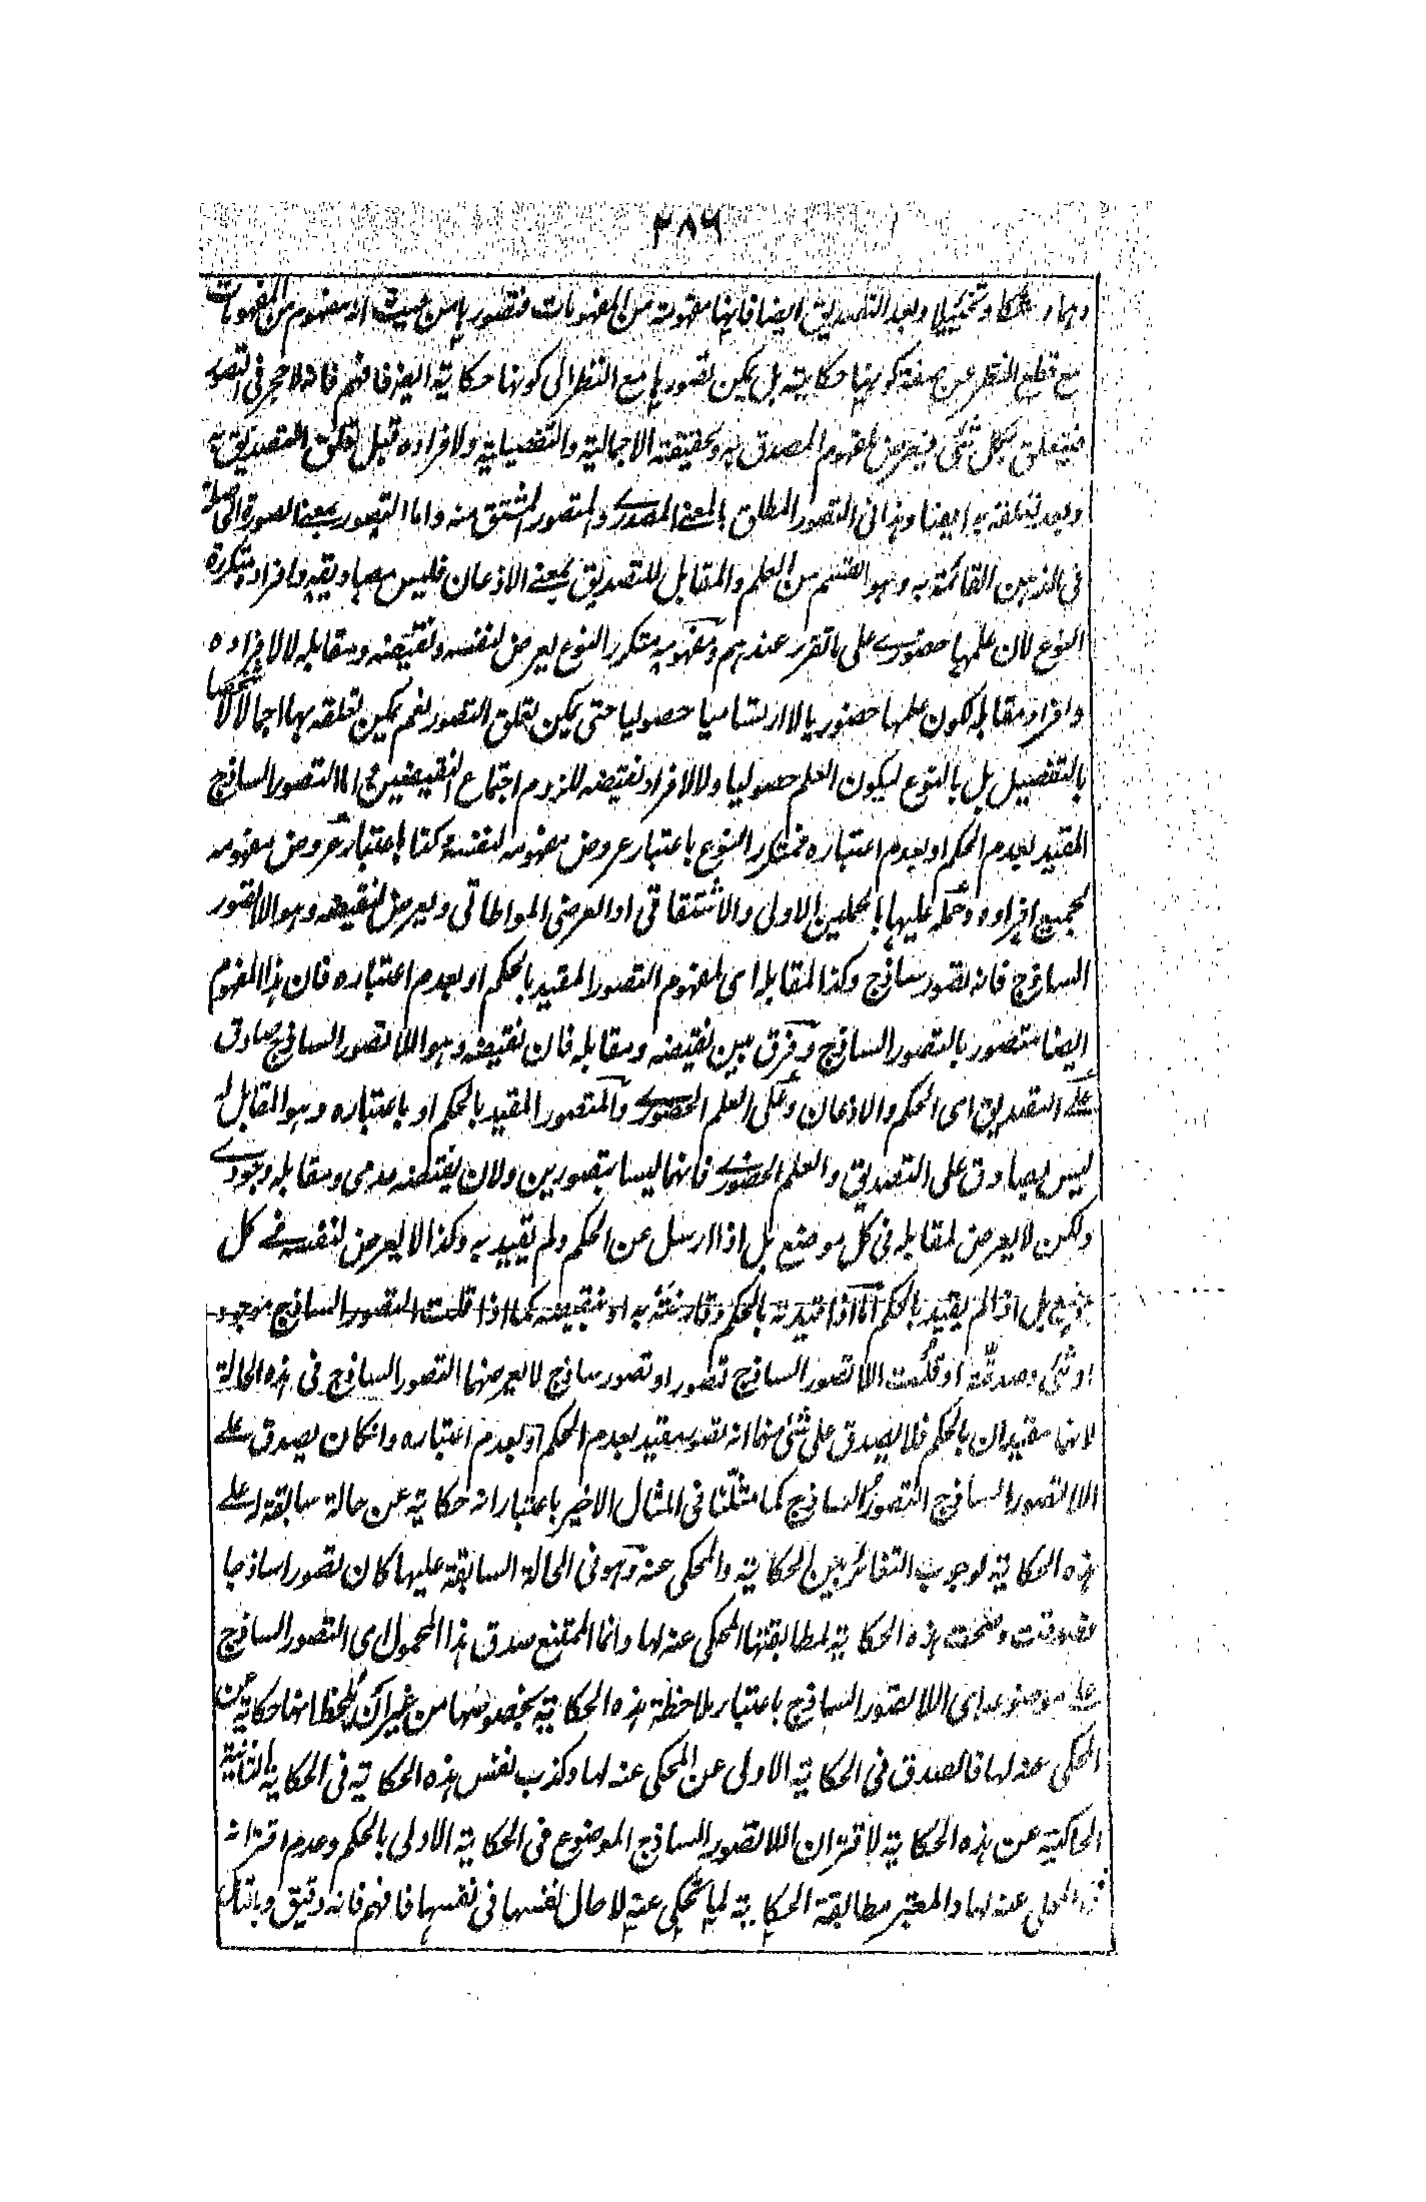 ٢٨٦
وهما وشكا وتخييلا وبعد التصديق ايضا فانها مفهومة من المفهومات فتصور ها من حيث انه مفهوم من المفهومات
مع قطع النظر عن صفة كونها حكاية بل يمكن تصور ها مع النظر الى كونها حكاية ايضا فافهم فانه لا حجر فى التصور
فيتعلق بكل شئ فيعرض لمفهوم المصدق به وبحقيقته الاجمالية والتفصيلية ولافراده قبل تعلق التصديق به
وبعد تعلقه به ايضا وهذا فى التصور المطلق بالمعنى المصدرى والمتصور المشتق منه واما التصور بمعنى الصورة الحاصلة
فى الذهن القائمة به وهو القسم من العلم والمقابل للتصديق بمعنى الاذعان فليس مصاديقه وافراده متكررة
النوع لان علمها حضورى على ما تقرر عندهم ومفهومه متكرر النوع يعرض لنفسه ونقيضه ومقابله لا لافراده
وافراد مقابله لكون علمها حضوريا لا ارتساميا حصوليا حتى يمكن تعلق التصور نعم يمكن تعلقه بها اجمالا لا شخصا
بالتفصيل بل بالنوع ليكون العلم حصوليا ولا لافراد نقيضه للزوم اجتماع النقيضين واما التصور الساذج
المقيد بعدم الحكم او بعدم اعتباره فمتكرر النوع باعتبار عروض مفهومه لنفسه وكذا باعتبار عروض مفهومه
لجميع افراده وحمله عليها بالحملين الاولى والاشتقاقى او العرضى المواطاتى ويعرض لنقيضه وهو اللاتصور
الساذج فانه تصور ساذج وكذا لمقابله اى لمفهوم التصور المقيد بالحكم او بعدم اعتباره فان هذا المفهوم
ايضا متصور بالتصور الساذج وفرق بين نقيضه ومقابله فان نقيضه وهو اللاتصور الساذج صادق
على التصديق اى الحكم والاذعان وعلى العلم الحضورى والمتصور المقيد بالحكم او باعتباره وهو المقابل له
ليس بصادق على التصديق والعلم الحضورى فانهما ليسا بتصورين ولان نقيضه عدمى ومقابله وجودى
ولكن لا يعرض لمقابله فى كل موضع بل اذا ارسل عن الحكم ولم يقيد به وكذا لا يعرض لنفسه فى كل
موضع بل اذا لم يقيد بالحكم اما اذا قيدته بالحكم وقارنته به او بنقيضه كما اذا قلت التصور الساذج موجود
او شئ وصدقته او قلت اللاتصور الساذج تصور او تصور ساذج لا يعرضهما التصور الساذج فى هذه الحالة
لانهما مقيدان بالحكم فلا يصدق على شئ منهما انه تصور مقيد بعدم الحكم او بعدم اعتباره وان كان يصدق على
اللاتصور الساذج التصور الساذج كما مثلنا فى المثال الاخير باعتبار انه حكاية عن حالة سابقة له على
هذه الحكاية لوجوب التغائر بين الحكاية والمحكى عنه وهو فى الحالة السابقة عليها كان تصورا ساذجا
فصدقت وصحت هذه الحكاية لمطابقتها المحكى عنه لها وانما الممتنع صدق هذا المحمول اى التصور الساذج
على موضوعه اى اللاتصور الساذج باعتبار ملاحظة هذه الحكاية بخصوصها من غير ان يلحظ انها حكاية عن
المحكى عنه لها فالصدق فى الحكاية الاولى عن المحكى عنه لها وكذب نفس هذه الحكاية فى الحكاية الثانية
الحاكية عن هذه الحكاية لاقتران اللاتصور الساذج الموضوع فى الحكاية الاولى بالحكم وعدم اقترانه
فى المحكى عنه لها والمعتبر مطابقة الحكاية لما تحكى عنه لا حال نفسها فى نفسها فافهم فانه دقيق وبالتأمل